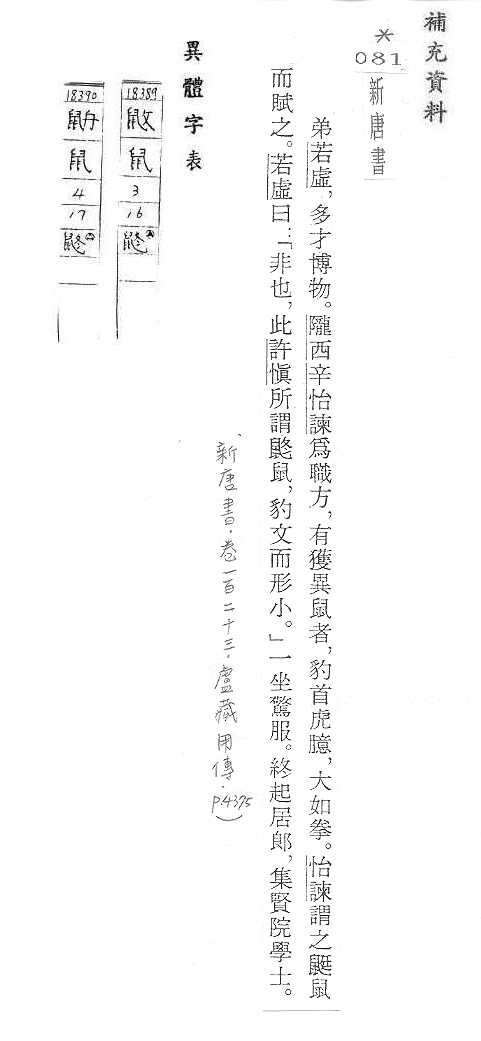 補充資料
*
081
新唐書
弟若虛，多才博物。隴西辛怡諫為職方，有獲異鼠者，豹首虎臆，大如拳。怡諫謂之鼮鼠
而賦之。若虛曰：「非也，此許慎所謂鼨鼠，豹文而形小。」一坐驚服。終起居郎，集賢院學士。
新唐書．卷一百二十三．盧藏用傳．P.4375)
異體字表
18389
鼠
3
16
鼨
18390
鼠
4
17
鼨